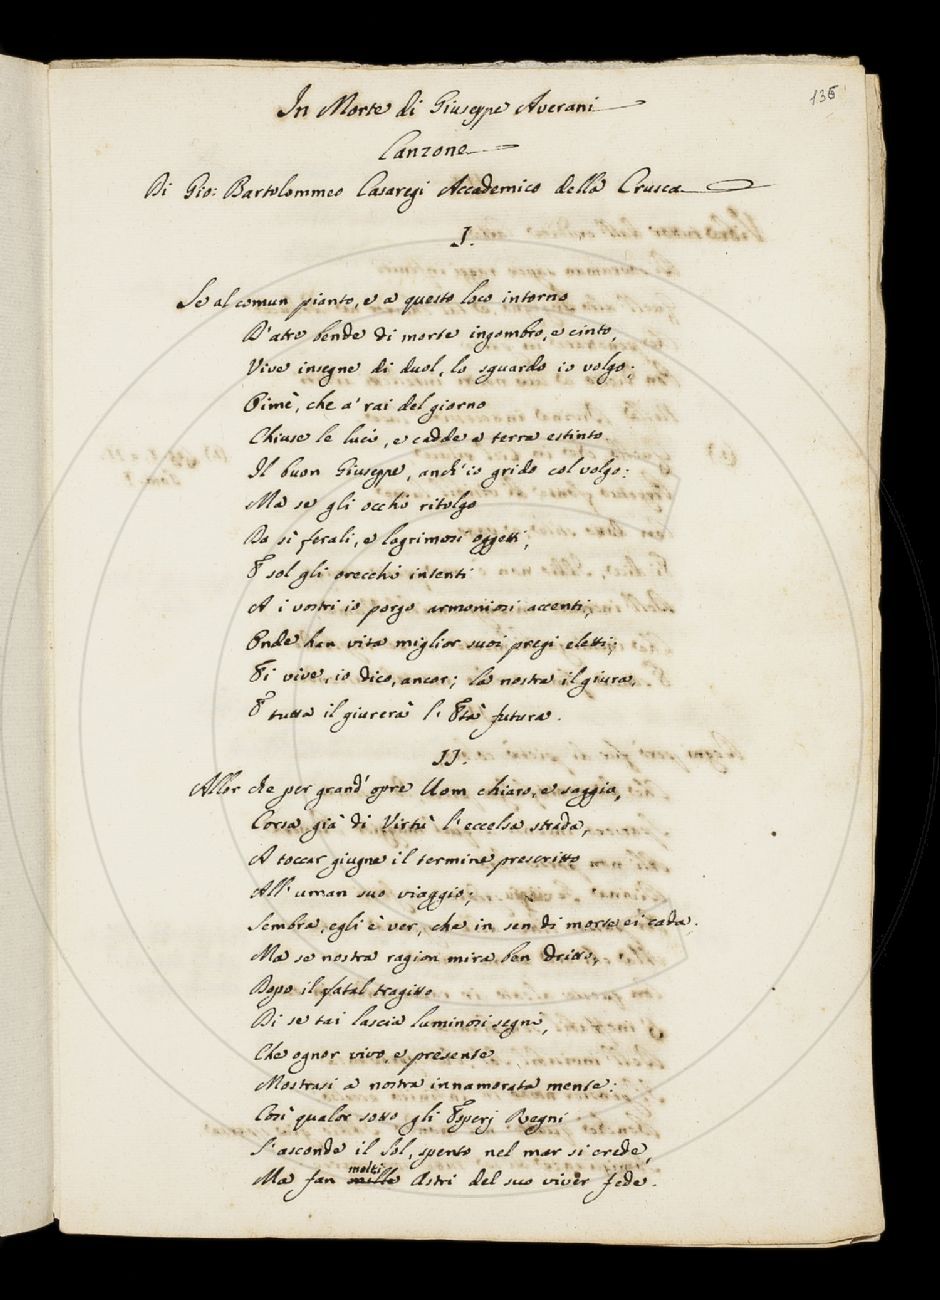 136
In Morte di Giuseppe Averani
Canzone
Di Gio: Bartolommeo Casaregi Accademico della Crusca
I.
Se al comun pianto, e a questo loco intorno
D'atre bende di morte ingombro, e cinto,
Vive insegne di duol, lo sguardo io volgo;
Oimè, che a' rai del giorno
Chiuse le luci, e cadde a terra estinto
Il buon Giuseppe, anch'io grido col volgo:
Ma se gli occhi ritolgo
Da sì ferali, e lagrimosi oggetti,
E sol gli orecchi intenti
A i vostri io porgo armoniosi accenti,
Onde han vita miglior suoi pregi eletti;
Ei vive, io dico, ancor; la nostra il giura,
E tutta il giurerà l'Età futura.
II.
Allor che per grand'opre Uom chiaro, e saggio,
Corsa già di Virtù l'eccelsa strada,
A toccar giugne il termine prescritto
All'uman suo viaggio;
Sembra, egli è ver, che in sen di morte ei cada.
Ma se nostra ragion mira ben dritto,
Dopo il fatal tragitto
Di se tai lascia luminosi segni,
Che ognor vivo, e presente
Mostrasi a nostra innamorata mente:
Così qualor sotto gli Esperj Regni
S'asconde il Sol, spento nel mar si crede,
molti
Ma fan mille Astri del suo viver fede.